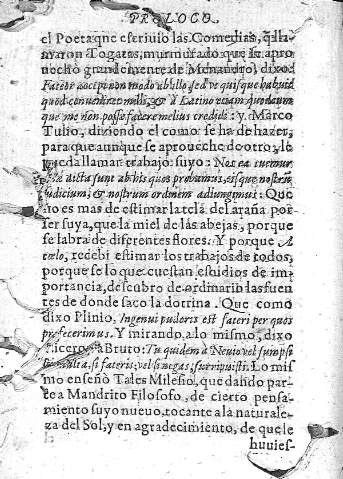 PROLOGO.
el Poeta que escriuio las Comedias, q̃ llamaron
maron Togatas, murmurado que se apro
uechò grandemente de Menandro, dixo:
Fateor accepi non modo ab illo, sed ve quisque habuit
quod conueniret mihi, & à Latino etiam quodcum
que me non posse facere melius credidi: y Marco
Tulio, diziendo el como se ha de hazer,
para que aunque se aprouéche de otro, le
pueda llamar trabajo suyo: Nos ea tuemur
quæ dicta sunt ab his quos probamus, eisque nostrũ
iudicium, & nostrum ordinem adiungimus: Que
no es mas de estimar la tela del araña por
ser suya, que la miel de las abejas, porque
se labra de diferentes flores. Y porque A
ælo, recebi estimar los trabajos de todos,
porque se lo que cuestan estudios de im-
portancia, descubro de ordinario las fuen
tes de donde saco la dotrina. Que como
dixo Plinio, Ingenui pudoris est fateri per quos
profecerimus. Y mirando a lo mismo, dixo
Cicero, a Bruto: Tu quidem à Neuio vel sumpsi
sti multa, si fateris; vel si negas, surripuisti. Lo mis
mo enseñò Tales Milesio, que dando par-
te a Mandrito Filosofo, de cierto pensa-
miento suyo nueuo, tocante a la naturale-
za del Sol; y en agradecimiento, de que le
huuies-